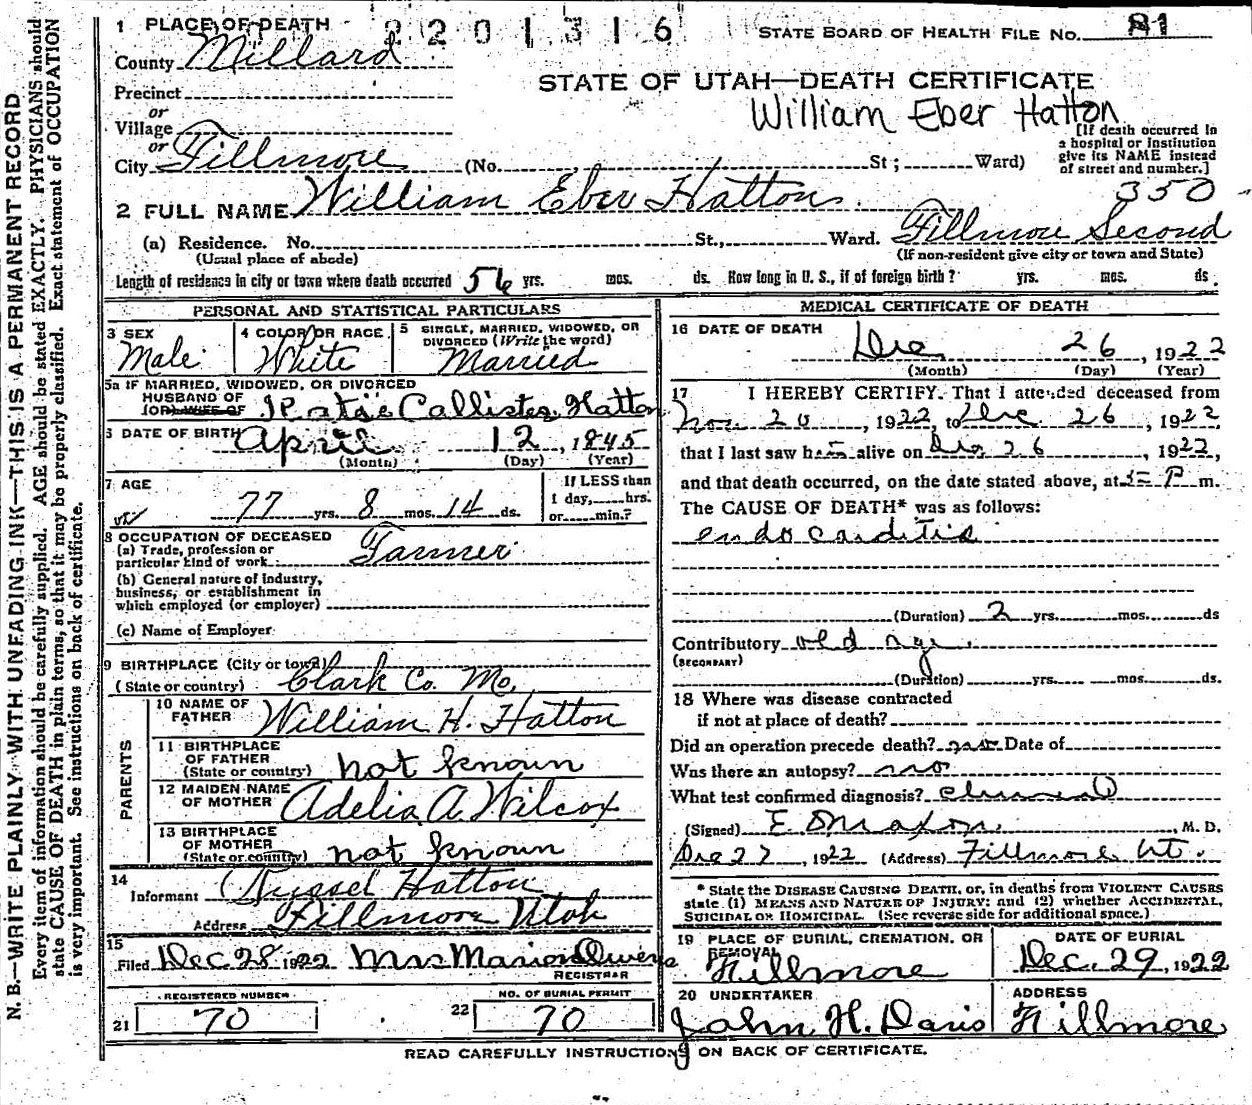 N. B.—WRITE PLAINLY WITH UNFADING INK—THIS IS A PERMANENT RECORD
Every item of information should be carefully supplied. AGE should be stated EXACTLY. PHYSICIANS should
state CAUSE OF DEATH in plain terms, so that it may be properly classified. Exact statement of OCCUPATION
is very important. See instructions on back of certificate.
1 PLACE OF DEATH 2201316 STATE BOARD OF HEALTH FILE NO. 81
County Millard
STATE OF UTAH—DEATH CERTIFICATE
Precinct
William Eber Hatton
or
Village
or
City Fillmore (No. St; Ward)
[If death occurred in
a hospital or institution
give its NAME instead
of street and number.]
350
2 FULL NAME William Eber Hatton
(a) Residence. No. St., Ward. Fillmore Second
(Usual place of abode) (If non-resident give city or town and State)
Length of residence in city or town where death occurred 56 yrs. mos. ds. How long in U. S., if of foreign birth? yrs. mos. ds.
PERSONAL AND STATISTICAL PARTICULARS
3 SEX Male
4 COLOR OR RACE White
5 SINGLE, MARRIED, WIDOWED, OR
DIVORCED (Write the word)
Married
5a IF MARRIED, WIDOWED, OR DIVORCED
HUSBAND OF
(OR) WIFE OF Callister Hatton
6 DATE OF BIRTH April 12, 1845
(Month) (Day) (Year)
7 AGE
77 yrs. 8 mos. 14 ds.
If LESS than
1 day, hrs.
or min.?
8 OCCUPATION OF DECEASED
(a) Trade, profession or
particular kind of work Farmer
(b) General nature of Industry,
business, or establishment in
which employed (or employer)
(c) Name of Employer
9 BIRTHPLACE (City or town)
(State or country) Clark Co. Mo.
PARENTS
10 NAME OF
FATHER William H. Hatton
11 BIRTHPLACE
OF FATHER
(State or country) not known
12 MAIDEN NAME
OF MOTHER Adelia A. Wilcox
13 BIRTHPLACE
OF MOTHER
(State or country) not known
14
Informant Russel Hatton
Address Fillmore Utah
15
Filed Dec 28 1922 Mrs Marion Owens
REGISTRAR
21 REGISTERED NUMBER
70
22 NO. OF BURIAL PERMIT
70
MEDICAL CERTIFICATE OF DEATH
16 DATE OF DEATH
Dec 26, 1922
(Month) (Day) (Year)
17 I HEREBY CERTIFY, That I attended deceased from
Nov. 20, 1922, to Dec. 26, 1922
that I last saw him alive on Dec 26, 1922,
and that death occurred, on the date stated above, at 5 P m.
The CAUSE OF DEATH* was as follows:
endocarditis
(Duration) 2 yrs. mos. ds
Contributory old age.
(SECONDARY)
(Duration) yrs. mos. ds.
18 Where was disease contracted
if not at place of death?
Did an operation precede death? Date of
Was there an autopsy? no
What test confirmed diagnosis? clinical
(Signed) M. D.
Dec 27, 1922 (Address) Fillmore Ut.
* State the DISEASE CAUSING DEATH, or, in deaths from VIOLENT CAUSES
state (1) MEANS AND NATURE OF INJURY; and (2) whether ACCIDENTAL,
SUICIDAL OR HOMICIDAL. (See reverse side for additional space.)
19 PLACE OF BURIAL, CREMATION, OR
REMOVAL
Fillmore
DATE OF BURIAL
Dec. 29, 1922
20 UNDERTAKER
John H. Davis
ADDRESS
Fillmore
READ CAREFULLY INSTRUCTIONS ON BACK OF CERTIFICATE.